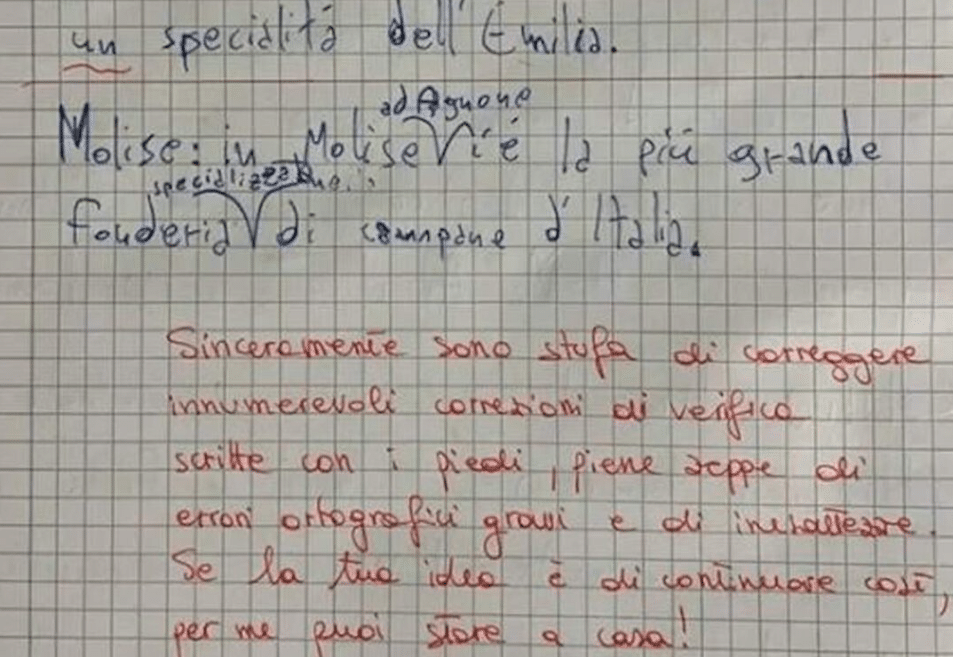 un specialità dell'Emilia.
ad Agnone
Molise: in Molise V'i é la più grande
specializzata
fonderia V di campane d'Italia.
Sinceramente sono stufa di correggere
innumerevoli correzioni di verifica
scritte con i piedi, piene zeppe di
errori ortografici gravi e di inesattezze.
Se la tua idea è di continuare così,
per me puoi stare a casa!